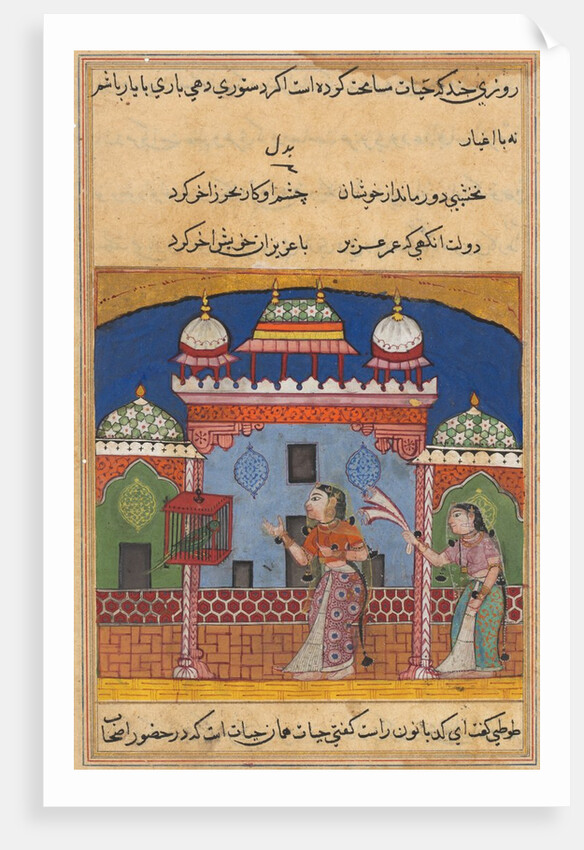 روزي چند که حیات مسامحت کرده است اکر دستوري دهي باري با یار باشم
نه با اغیار
بدل
نخشبي دور ماند از خویشان چشم او کار بحر زاخر کرد
دولت انکهي که عمر عزیز با عزیزان خویش اخر کرد
طوطي کفت اي کدبانو راست کفتي حیات همان حیات است که در حضور اصحاب